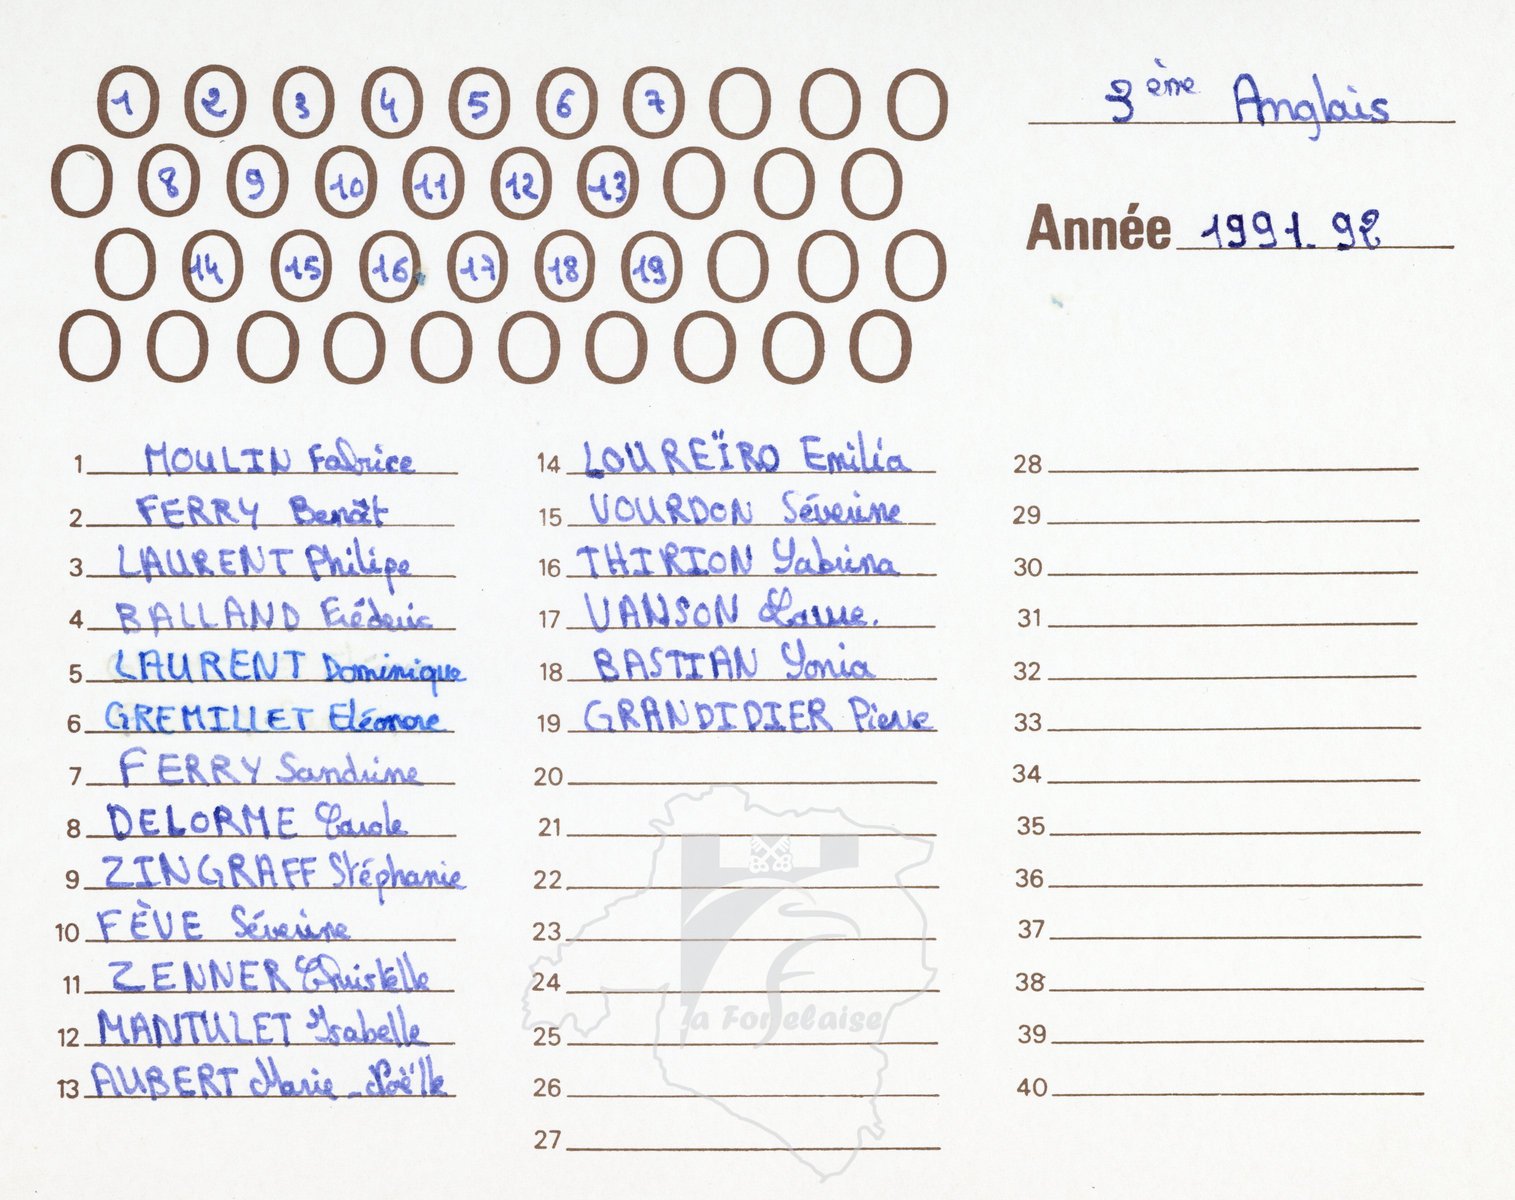 1 2 3 4 5 6 7
3ème Anglais
8 9 10 11 12 13
Année 1991-92
14 15 16 17 18 19
1 MOULIN Fabrice
2 FERRY Benoît
3 LAURENT Philipe
4 BALLAND Frédéric
5 LAURENT Dominique
6 GREMILLET Eléonore
7 FERRY Sandrine
8 DELORME Carole
9 ZINGRAFF Stéphanie
10 FÈVE Séverine
11 ZENNER Christelle
12 MANTULET Isabelle
13 AUBERT Marie-Noëlle
14 LOUREÏRO Emilia
15 VOURDON Séverine
16 THIRION Sabrina
17 VANSON Laure.
18 BASTIAN Sonia
19 GRANDIDIER Pierre
20
21
22
23
24
la Forgelaise
25
26
27
28
29
30
31
32
33
34
35
36
37
38
39
40